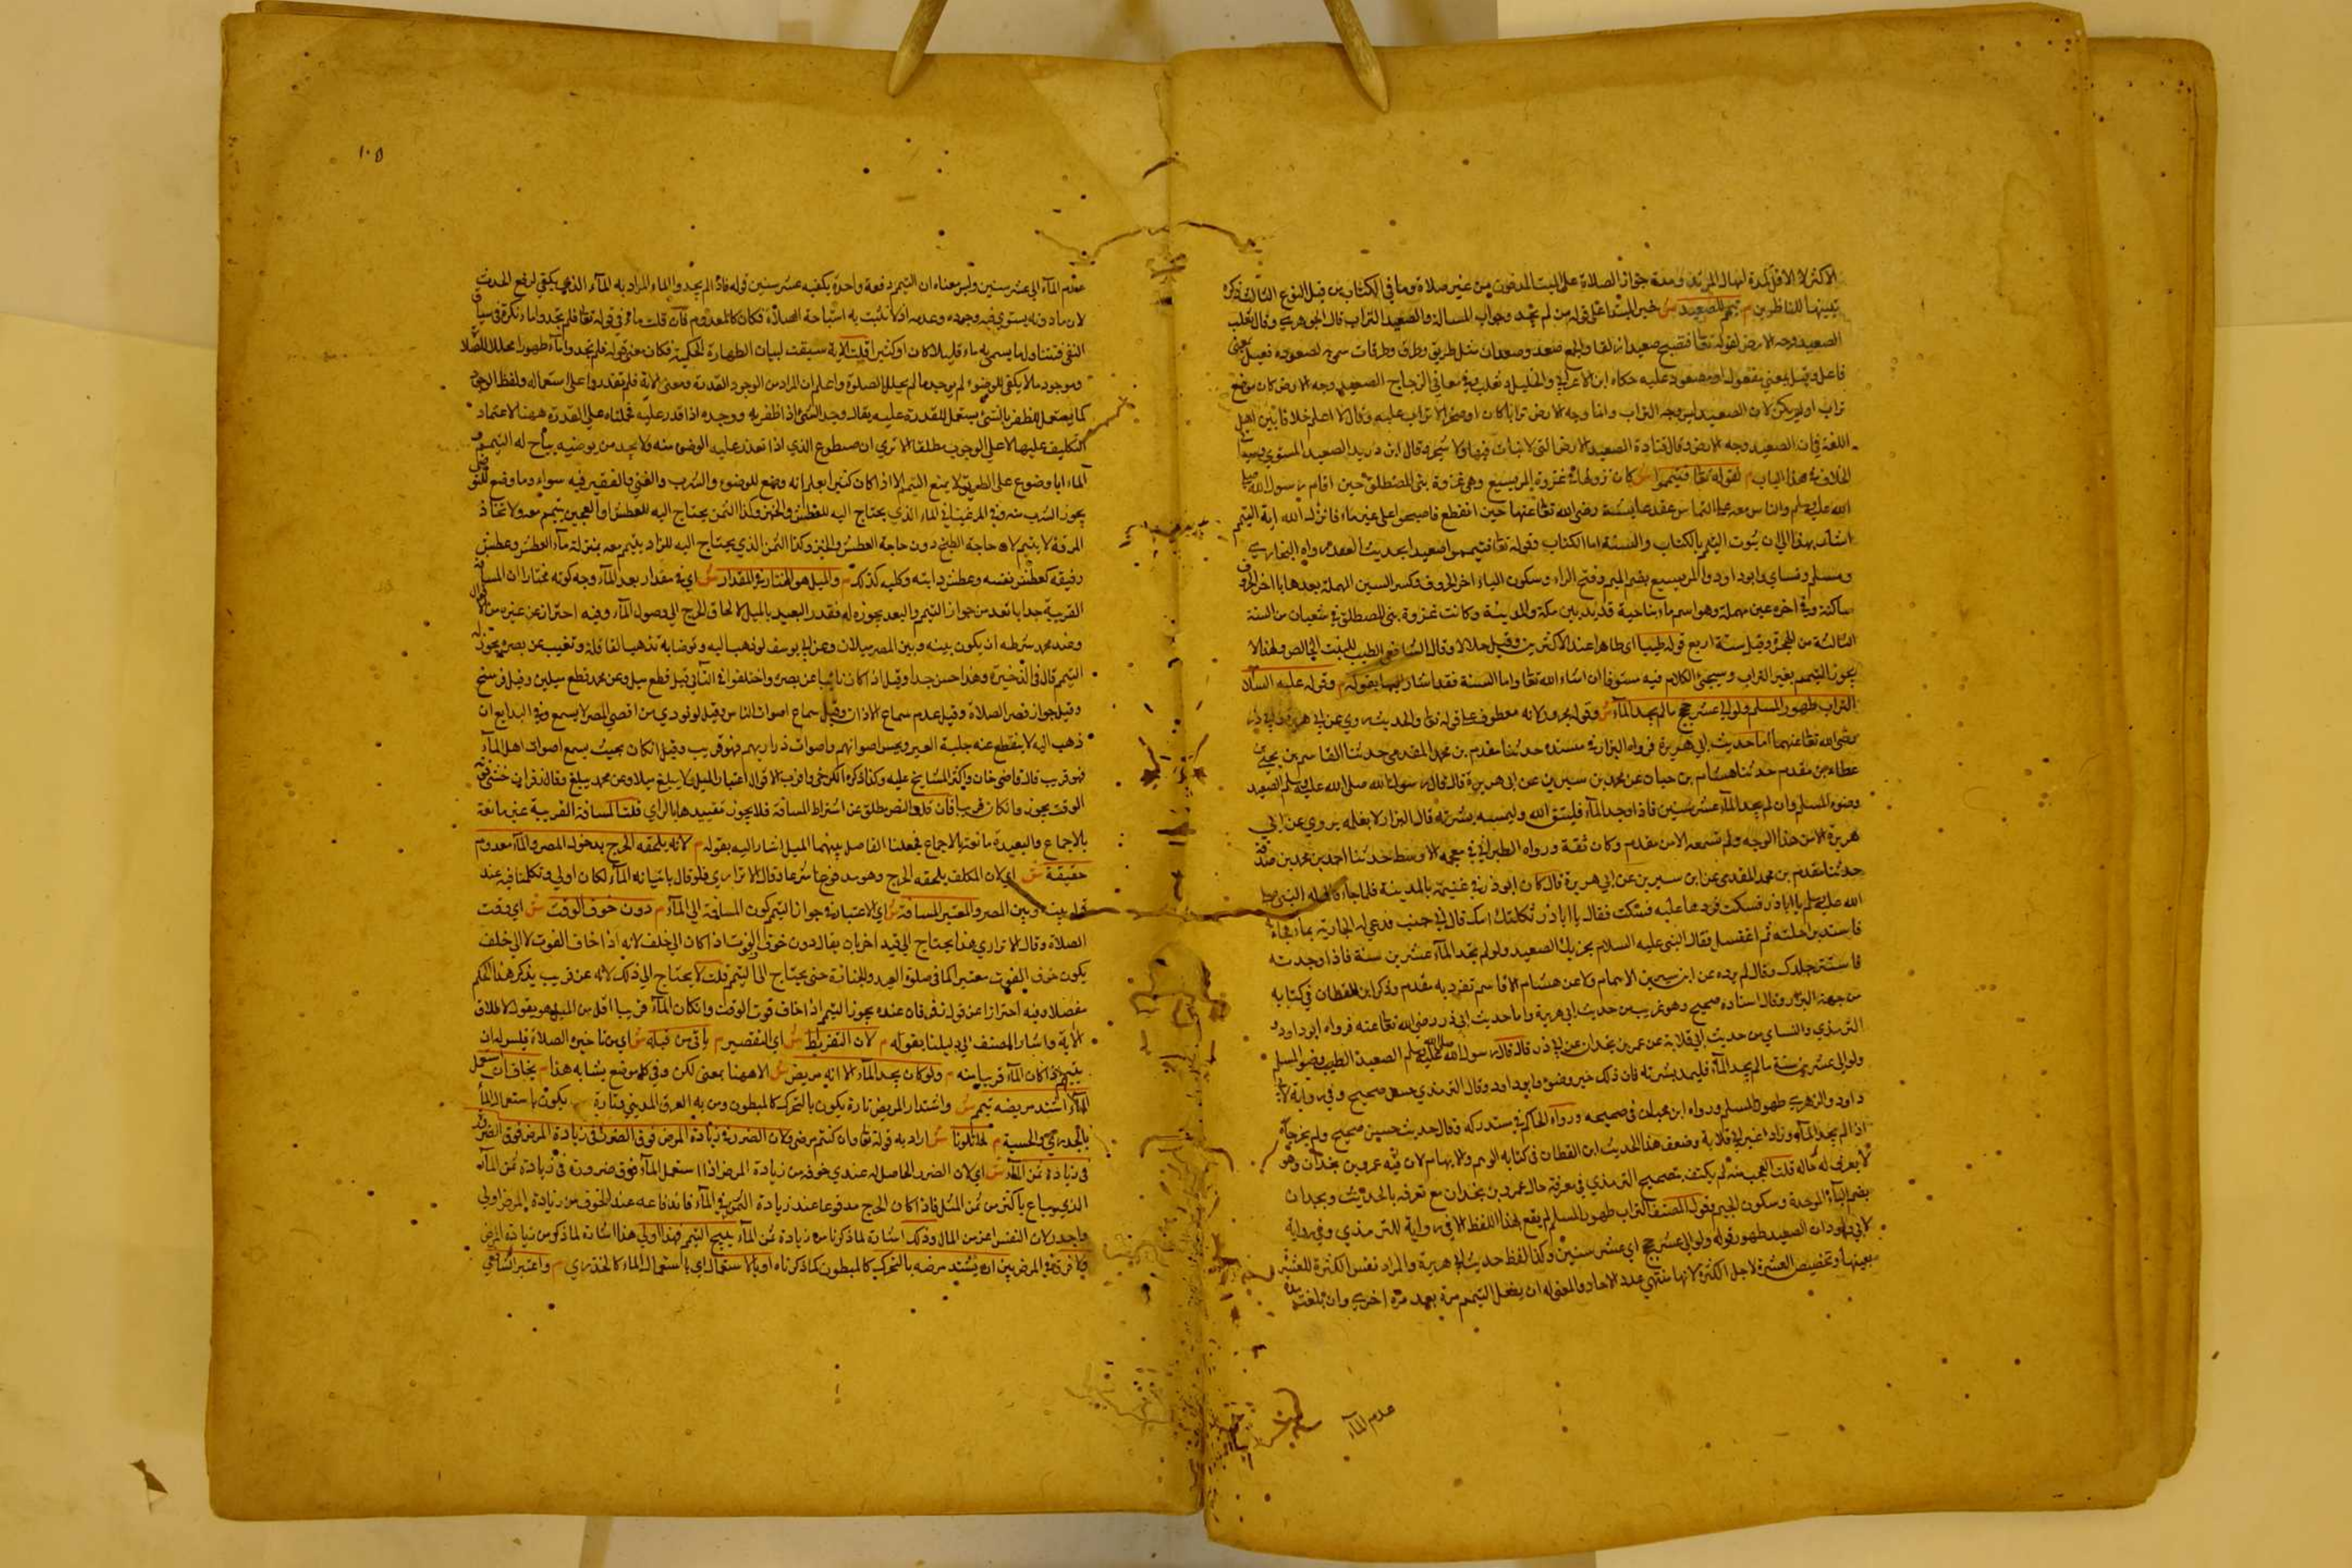 تيمم بالصعيد ش خبر المبتدأ اعني قوله من لم يجد وجواب المسالة والصعيد التراب قاله الجوهري وقال ثعلب
الصعيد وجه الارض لقوله تعا فتصبح صعيدا زلقا والجمع صعد وصعدات مثل طريق وطرق وطرقات
فاعل وقيل بمعنى مفعول او مصعود عليه حكاه ابن الاعرابي والخليل وثعلب وفي معاني الزجاج الصعيد وجه الارض كان موضع
تراب او لم يكن لان الصعيد ليس هو التراب وانما وجه الارض ترابا كان او صخرا لا تراب عليه وقال لا اعلم خلافا بين اهل
اللغة في ان الصعيد وجه الارض وقال قتادة الصعيد الارض التي لا نبات فيها ولا شجر وقال ابن دريد الصعيد المستوي
الخلاف في هذا الباب م لقوله تعا فتيمموا ش كان نزولها في غزوة المريسيع وهي غزوة بني المصطلق حين اقام رسول الله
الله عليه وسلم والناس معه على التماس عقد عايشة رضي الله تعا عنها حين انقطع فاصبحوا على غير ماء فانزل الله اية التيمم
اشار بهذا الى ان ثبوت التيمم بالكتاب والسنة اما الكتاب فقوله تعا فتيمموا صعيدا بحديث العقد رواه البخاري
ومسلم ونساي وابو داود والمريسيع بضم الميم وفتح الراء وسكون الياء اخر الحروف وكسر السين المهملة بعدها يا اخر الحروف
ساكنة وفي اخره عين مهملة وهو اسم ماء بناحية قديد بين مكة والمدينة وكانت غزوة بني المصطلق في شعبان من السنة
الثالثة من الهجرة وقيل سنة اربع قوله طيبا اي طاهرا عند الاكثرين وقيل حلالا وقال الشافعي الطيب المنبت الخالص ولهذا لا
يجوز التيمم بغير التراب وسيجئ الكلام فيه مستوفا ان شاء الله تعا واما السنة فقد اشار اليها بقوله م وقوله عليه السلام
التراب طهور المسلم ولو الى عشر حجج مالم يجد الماء ش وقوله مجرور لانه معطوف على قوله تعا والحديث روي عن ابي هريرة وابي ذر
رضي الله تعا عنهما اما حديث ابي هريرة فرواه البزار في مسنده حدثنا مقدم بن محمد المقدمي حدثنا القاسم بن يحيى بن
عطاء بن مقدم حدثنا هشام بن حسان عن محمد بن سيرين عن ابي هريرة قال قال رسول الله صلى الله عليه وسلم الصعيد
وضوء المسلم وان لم يجد الماء عشر سنين فاذا وجد الماء فليتق الله وليمسه بشرته قال البزار لا نعلمه يروي عن ابي
هريرة الا من هذا الوجه ولم نسمعه الا من مقدم وكان ثقة ورواه الطبراني في معجمه الاوسط حدثنا احمد بن محمد بن صدقة
حدثنا مقدم بن محمد المقدمي عن ابن سيرين عن ابي هريرة قال كان ابو ذر في غنيمة بالمدينة فلما جاء قال له النبي صلى
الله عليه وسلم يا ابا ذر فسكت فرددها عليه فسكت فقال يا ابا ذر ثكلتك امك قال اني جنب فدعي له الجارية بماء فجاءته
فاستتر براحلته ثم اغتسل فقال النبي عليه السلام يجزيك الصعيد ولو لم تجد الماء عشرين سنة فاذا وجدته
فامسسه جلدك وقال لم يروه عن ابن سيرين الا هشام ولا عن هشام الا القاسم تفرد به مقدم وذكر ابن القطان في كتابه
من جهة البزار وقال اسناده صحيح وهو غريب من حديث ابي هريرة واما حديث ابي ذر رضي الله تعا عنه فرواه ابو داود و
الترمذي والنساي من حديث ابي قلابة عن عمرو بن بجدان عن ابي ذر قال قال رسول الله صلى الله عليه وسلم الصعيد الطيب وضوء المسلم
ولو الى عشر سنين مالم يجد الماء فاذا وجد الماء فليمسه بشرته فان ذلك خير وقال الترمذي حسن صحيح وفي رواية لابي
داود والترمذي طهور المسلم ورواه ابن حبان في صحيحه ورواه الحاكم في مستدركه وقال حديث حسن صحيح ولم يخرجاه
وضعف هذا الحديث ابن القطان في كتابه الوهم والايهام لان فيه عمرو بن بجدان وهو
لا يعرف له حاله قلت العجب منه لم يكتف بتصحيح الترمذي في معرفة حال عمرو بن بجدان مع تعرفه بالحديث وبجدان
بضم الباء الموحدة وسكون الجيم وقول المصنف التراب طهور المسلم لم يقع بهذا اللفظ الا في رواية للترمذي وفي رواية
لابي داود ان الصعيد طهور قوله ولو الى عشر حجج اي عشر سنين وكذا لفظ حديث ابي هريرة والمراد نفس الكثرة للعشرة
بعينها وتخصيص العشرة لاجل الكثرة لانها منتهى عدد الاحاد والمعنى له ان يفعل التيمم مرة بعد مرة اخرى وان بلغت مدة
عدم الماء
١٠٥
عدم الماء الى عشر سنين وليس معناه ان التيمم دفعة واحدة يكفيه عشر سنين قوله فاذا لم يجد والماء المراد به الماء الذي يكفي لرفع الحدث
لان ما دونه يستوي فيه وجوده وعدمه اذ لا تثبت به استباحة الصلاة فكان كالمعدوم فان قلت ماء في قوله تعا فلم تجدوا ماء نكرة في سياق
النفي فيتناول ما يسمى به ماء قليلا كان او كثيرا قلت الاية سيقت لبيان الطهارة الحكمية فكان معنى قوله فلم تجدوا ماء طهورا محللا للصلاة
وبوجود ما لا يكفي للوضوء لم يوجد ما يحلل للصلوة واعلم ان المراد من الوجود القدرة ومعنى الاية فلم تقدروا على استعماله ولفظ الوجود
كما يستعمل للظفر بالشئ يستعمل للقدرة عليه يقال وجد الشئ اذا ظفر به ووجده اذا قدر عليه فحملناه على القدرة ههنا لاعتماد
التكليف عليها لا على الوجوب مطلقا الا ترى ان الذي اذا تعذر عليه الوضوء منه ولا يجد من يوضيه يباح له التيمم و
الماء الموضوع على الطريق لا يمنع التيمم الا اذا كان كثيرا يعلم انه وضع للوضوء والشرب والغني والفقير فيه سواء وما وضع للتوضي
يجوز الشرب منه وفي المرغيناني الماء الذي يحتاج اليه للعطش والخبز وكذا الثمن يحتاج اليه للعطش والعجين يتيمم معه ولاتخاذ
المرقة لا يتيمم لان حاجة الطبخ دون حاجة العطش والخبز وكذا الثمن الذي يحتاج اليه للزاد يتيمم معه بمنزلة ماء العطش وعطش
رفيقه كعطش نفسه وعطش دابته وكلبه كذلك م والميل هو المختار في المقدار ش اي في مقدار بعد الماء وجه كونه مختارا ان المسافة
القريبة جدا ما تعد من جواز التيمم والبعد يجوزه له فقدر البعيد بالميل لالحاق الحرج الى وصول الماء وفيه احتراز عن غيره من الاقوال
وعند محمد شرطه ان يكون بينه وبين المصر ميلان وعن ابي يوسف لو ذهب اليه وتوضا به تذهب القافلة وتغيب عن بصره يجوز له
التيمم قال في الذخيرة وهذا حسن جدا وقيل اذا كان نائيا عن بصره واختلفوا في النائي قيل قطع ميل وعن محمد قطع ميلين وقيل فرسخ
وقيل جواز قصر الصلاة وقيل عدم سماع الاذان وقيل سماع اصوات الناس وقيل لو نودي من اقصى المصر لا يسمع وفي البدايع ان
ذهب اليه لا ينقطع عنه جلبة العير ويحس اصواتهم واصوات دوابهم فهو قريب وقيل ان كان بحيث يسمع اصوات اهل الماء
فهو قريب قال قاضي خان واكثر المشايخ عليه وكذا ذكره الكرخي واقرب الاقوال اعتبار الميل
الوقت يجوز وان كان قريبا فان قلت النص مطلق عن اشتراط المسافة فلا يجوز تقييدها بالراي قلت المسافة القريبة غير مانعة
بالاجماع والبعيدة مانعة بالاجماع فجعلنا الفاصل بينهما الميل اشار اليه بقوله م لانه يلحقه الحرج بدخول المصر والماء معدوم
حقيقة ش اي لان المكلف يلحقه الحرج وهو مدفوع شرعا وقال الاترازي فلو قال باتيانه الماء لكان اولى وتكلمنا فيه عند
قوله بينه وبين المصر والمعتبر المسافة ش اي الاعتبار في جواز التيمم كون المسافة الى الماء م دون خوف الوقت ش اي وقت
الصلاة وقال الاترازي هذا يحتاج الى قيد اخر بان يقال دون خوف الفوت اذا كان الى خلف لانه اذا خاف الفوت لا الى خلف
يكون خوف الفوت معتبرا كما في صلوة العيد والجنازة حتى يحتاج الى التيمم قلت لا يحتاج الى ذلك لانه عن قريب يذكر هذا الحكم
مفصلا وفيه احترازا عن قول زفر فان عنده يجوز التيمم اذا خاف فوت الوقت وان كان الماء قريبا اقل من الميل وهو يقول لاطلاق
الاية واشار المصنف الى دليلنا بقوله م لان التفريط ش اي التقصير م ياتي من قبله ش اي من تاخير الصلاة فليس له ان
يتيمم اذا كان الماء قريبا منه م ولو كان يجد الماء الا انه مريض ش الا ههنا بمعنى لكن وفي كل موضع يشابه هذا م يخاف ان استعمل
الماء اشتد مرضه تيمم ش واشتداد المرض تارة يكون بالتحرك كالمبطون ومن به العرق المديني وتارة يكون باستعمال الماء
بالجدري والحصبة م لما تلونا ش اراد به قوله تعا وان كنتم مرضى ولان الضرر في زيادة المرض فوق الضرر
في زيادة ثمن الماء ش اي لان الضرر الحاصل له عندي خوفه من زيادة المرض اذا استعمل الماء فوق ضرورة في زيادة ثمن الماء
الذي يباع باكثر من ثمن المثل فاذا كان الحرج مدفوعا عند زيادة الثمن في الماء فاندفاعه عند الخوف من زيادة المرض اولى
واجدر لان النفس اعز من المال وذلك اشارة لما ذكرنا من زيادة ثمن الماء يبيح التيمم فهذا اولى هذا اشارة لما ذكر من زيادة المرض
ولا فرق في المرض بين ان يشتد مرضه بالتحرك كالمبطون كما ذكرناه او بالاستعمال اي باستعمال الماء كالجدري م واعتبر الشافعي